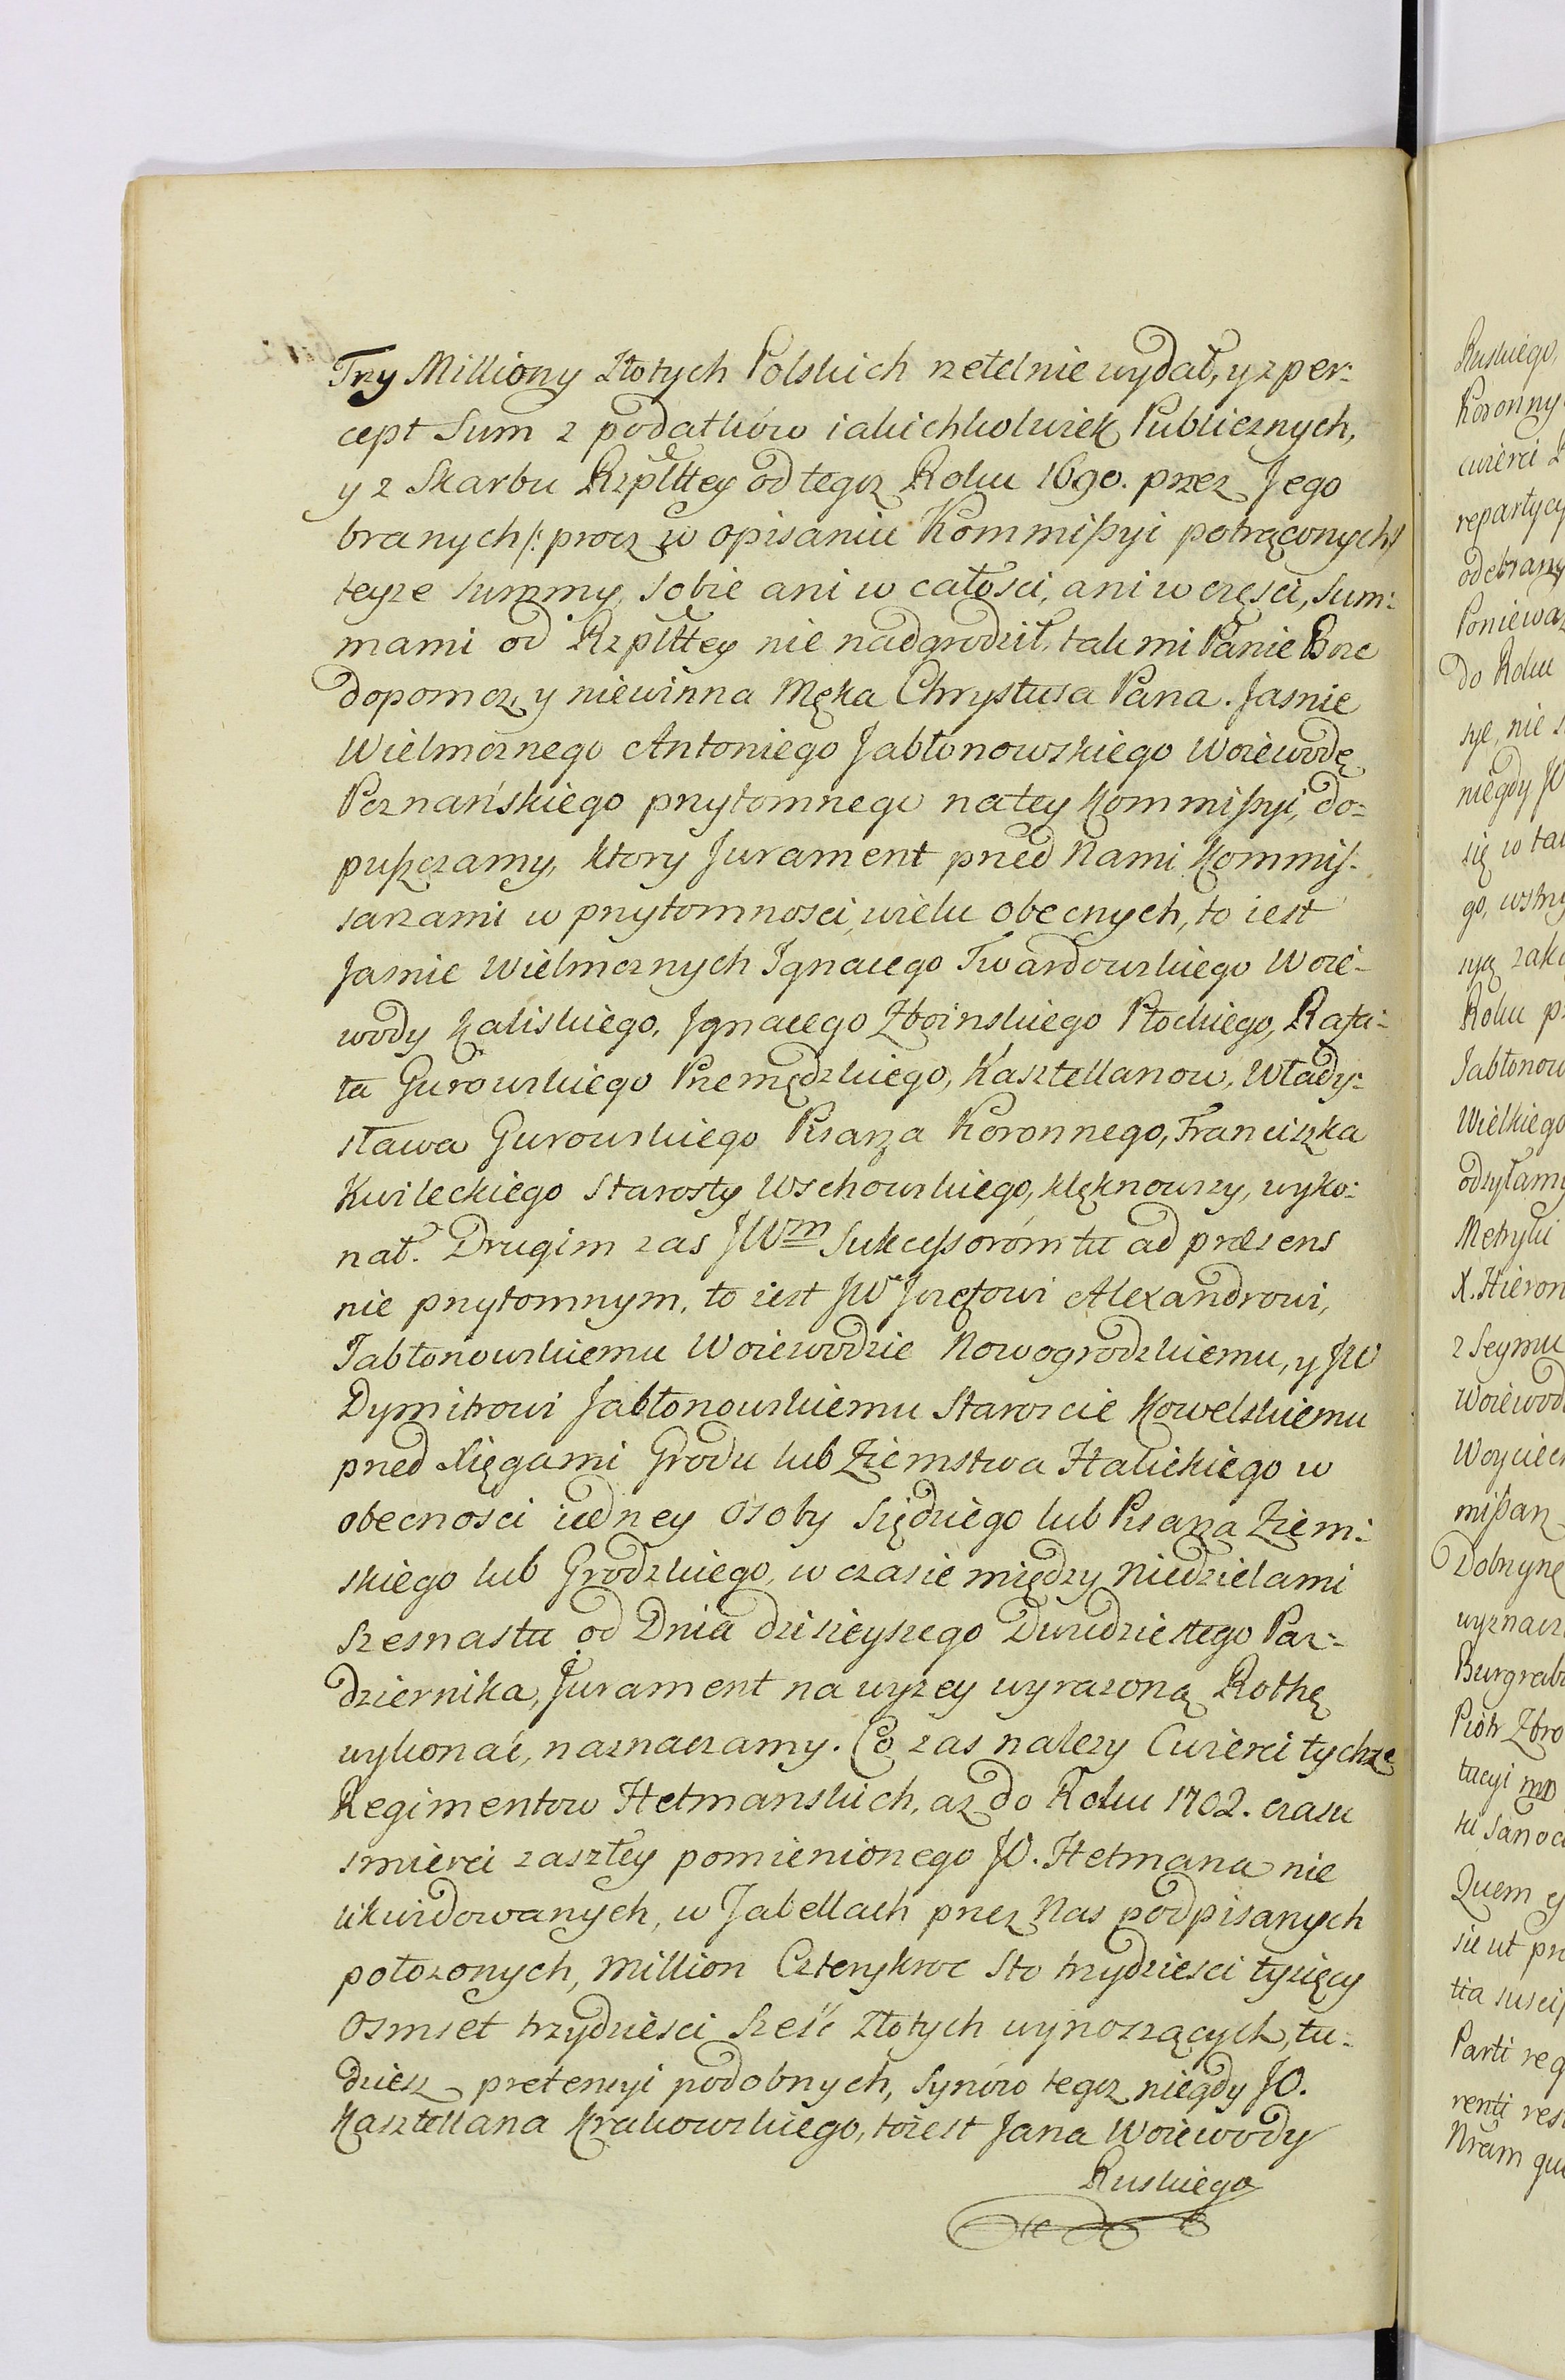 Trzy Milliony Złotych Polskich rzetelnie wydał, y z per-
cept Sum z podatków iakichkolwiek Publicznych,
y z Skarbu Rzplttey od tegoz Roku 1690. przez Jego
branych /: procz w opisaniu Kommissyi potrąconych :/
teyze summy, sobie ani w całości, ani w części, Sum-
mami od Rzplttey nie nadgrodził, tak mi Panie Boze
dopomoz, y niewinna Męka Chrystusa Pana. Jasnie
Wielmoznego Antoniego Jabłonowskiego Woiewodę
Poznańskiego przytomnego na tey Kommissyi, do-
puszczamy, ktory Jurament przed Nami Kommis-
sarzami w przytomnosci wielu obecnych, to iest
Jasnie Wielmoznych Ignacego Twardowskiego Woie-
wody Kaliskiego, Ignacego Zboinskiego Płockiego, Rafa-
ła Gurowskiego Przemędzkiego, Kasztellanow, Włady-
sława Gurowskiego Pisarza Koronnego, Franciszka
Kwileckiego Starosty Wschowskiego, klęknowszy, wyko-
nał. Drugim zas JWm Sukcessorom tu ad præsens
nie przytomnym, to iest JW Jozefowi Alexandrowi,
Jabłonowskiemu Woiewodzie Nowogrodzkiemu, y JW
Dymitrowi Jabłonowskiemu Staroscie Kowelskiemu
przed Xięgami Grodu lub Ziemstwa Halickiego w
obecnosci iedney Osoby Siędziego lub Pisarza Ziem-
skiego lub Grodzkiego, w czasie między Niedzielami
Szesnastu od Dnia dzisieyszego Dwudziestego Paz-
dziernika, Jurament na wyzey wyrazoną Rothę
wykonać, naznaczamy. Co zas nalezy Cwierci tychze
Regimentow Hetmanskich, az do Roku 1702. czasu
smierci zaszłey pomienionego JO. Hetmana nie
likwidowanych, w Tabellach przez Nas podpisanych
połozonych, Million Czterykroc Sto trzydziesci tysięcy
Osmset trzydziesci Sześć Złotych wynoszących, tu-
dziesz pretensyi podobnych, Synów tegoz niegdy JO.
Kasztellana Krakowskiego, to iest Jana Woiewody
Ruskiego
Ruskiego,
Koronny
cwierci
repartycy
odebrany
Poniewaz
do Roku
sye, nie
niegdy JO
się w tak
syą zak
Roku
Jabłonow
Wielkiego
odsyłamy
Metryki
X. Hieron
z Seymu
Woiewod
Woyciech
missarz
Dobrzyne
wyznacz
Burgrab
Piotr Zbro
Sanoc
Quem
sicut
tia suscip
Parti req
renti res
Nram